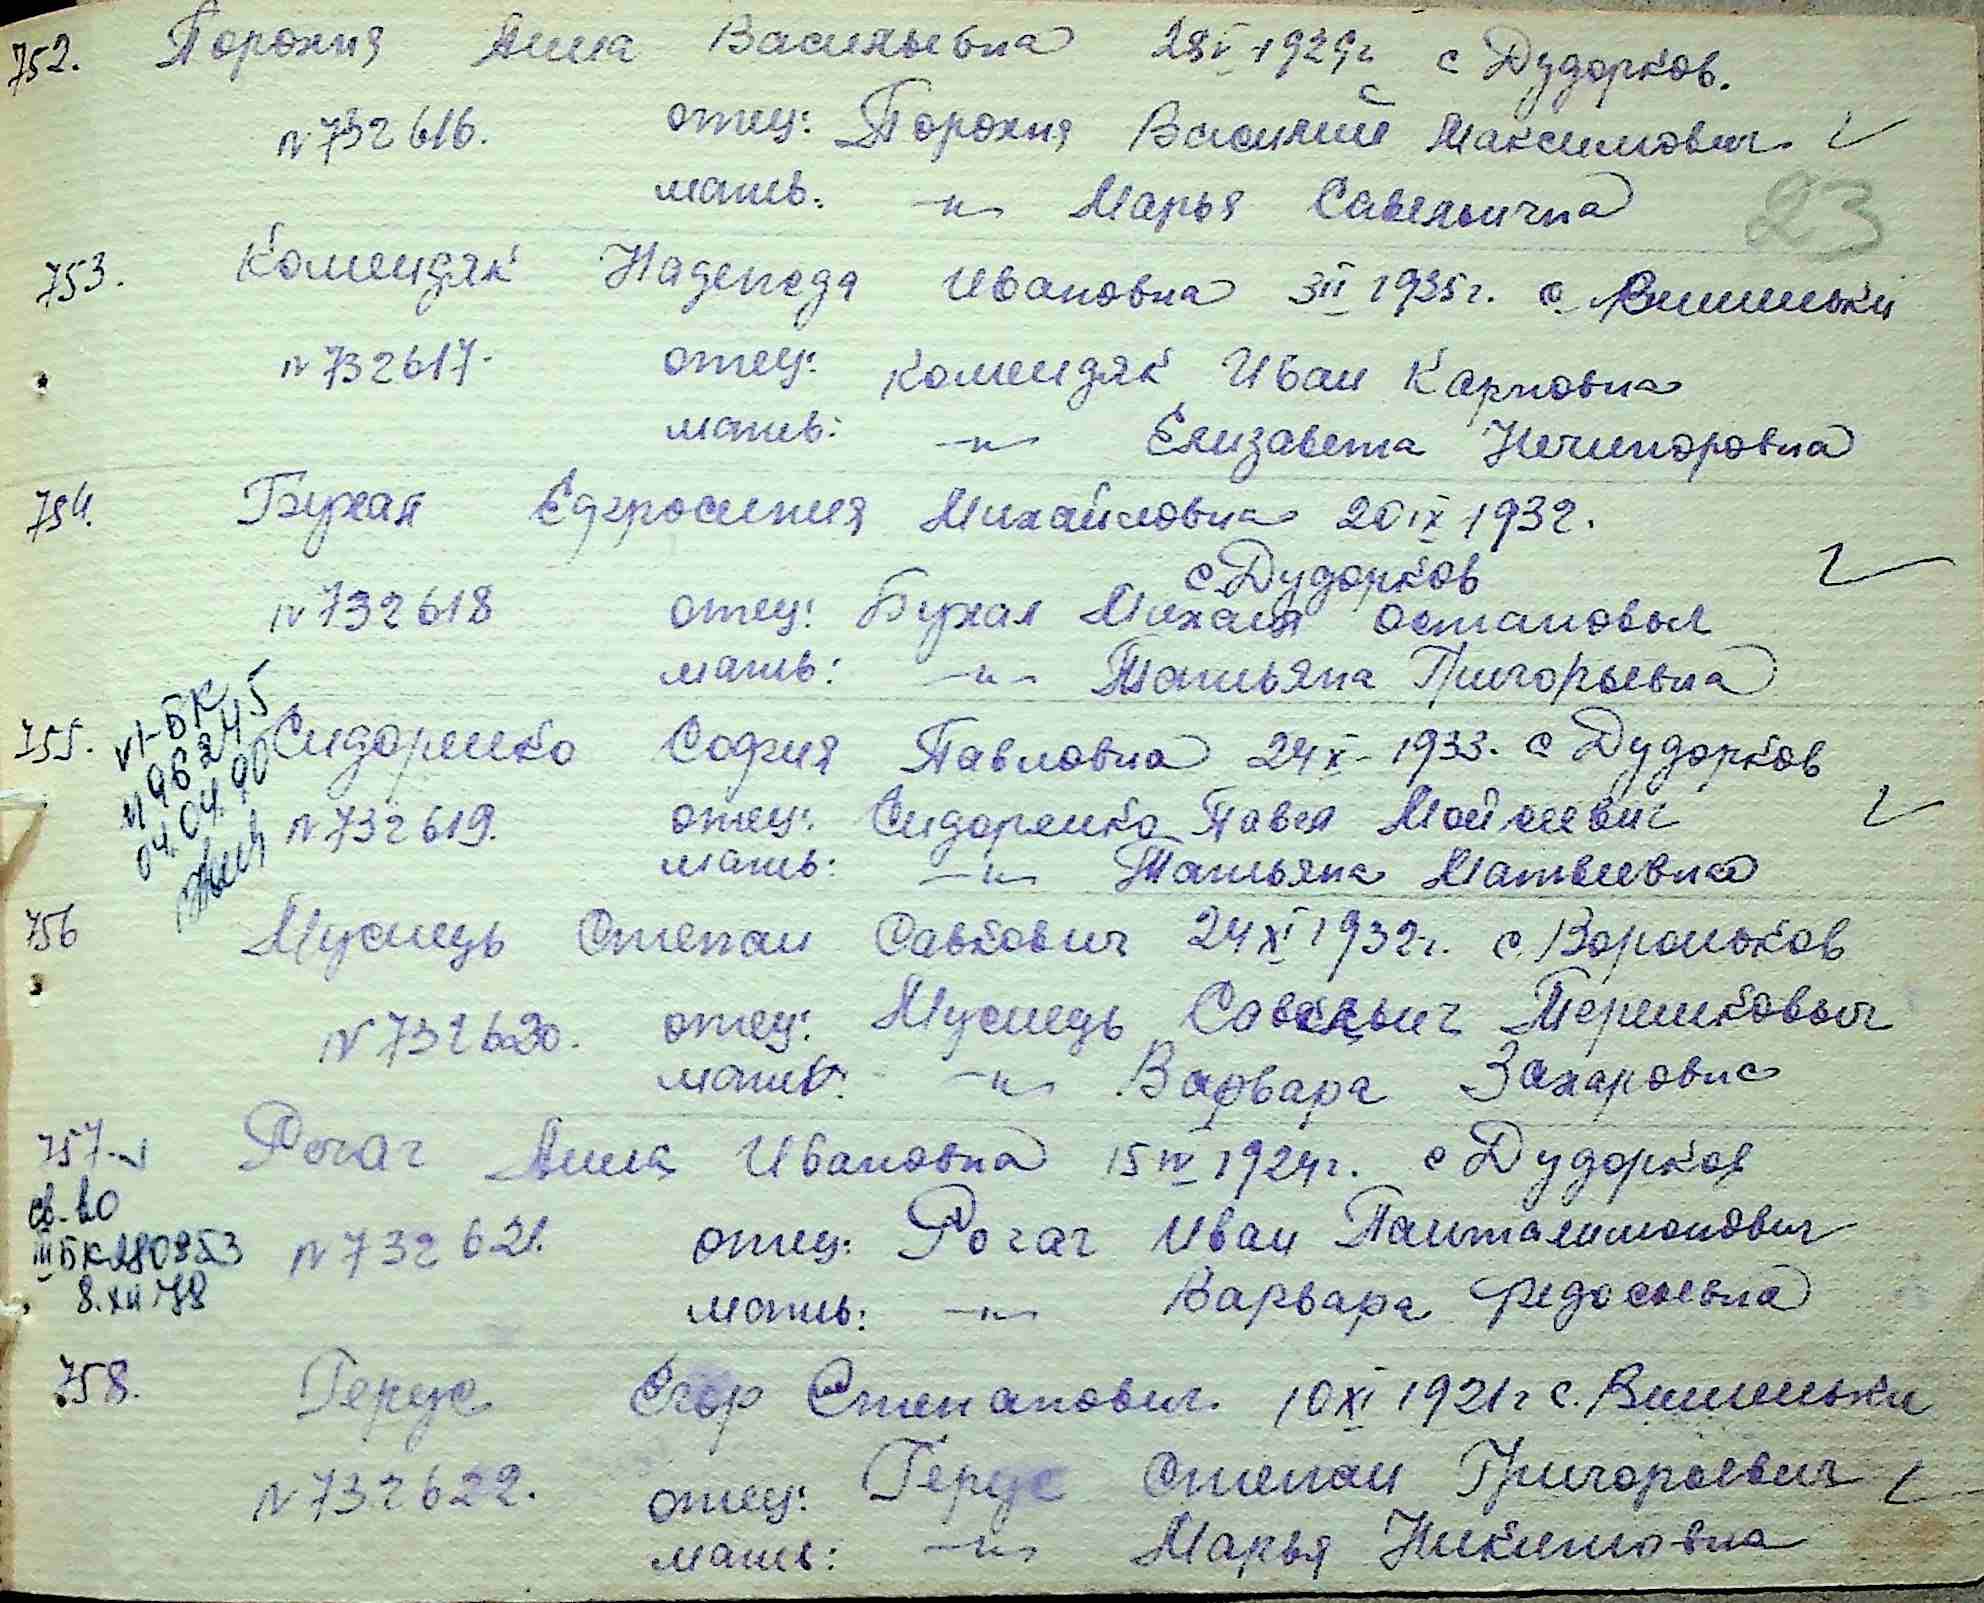 752. Порохня Анна Васильевна 28 V 1929г с Дудорков.
N 732616. отец: Порохня Василий Максимович.
мать: -"- Марья Савельична
23
753. Комендяк Надежда Ивановна 3 II 1935г. с. Вишеньки
N 732617. отец: Комендяк Иван Карповна
мать: -"- Елизавета Нечипоровна
754. Бухал Ефросиния Михайловна 20 IX 1932.
с. Дудорков
N 732618 отец: Бухал Михаил Остапович
мать: -"- Татьяна Григорьевна
755. Сидоренко София Павловна 24 X 1933. с Дудорков
VI-БК
N 963445
04.04.90
N 732619. отец: Сидоренко Павел Мойсеевич
мать: -"- Татьяна Матвеевна
756 Мусиець Степан Савкович 24 XI 1932г. с. Вороньков
N 732620. отец: Мусиець Терешкович
мать: -"- Варвара Захаровна
757. Рогач Анна Ивановна 15 IV 1924г. с Дудорков
св-во
III БК 280953
8.XII 78
N 732621. отец: Рогач Иван Панталимонович
мать: -"- Варвара Федосьевна
758. Герус Егор Степанович. 10 XI 1921г с. Вишеньки
N 732622. отец: Герус Степан Григорьевич
мать: -"- Марья Никитовна